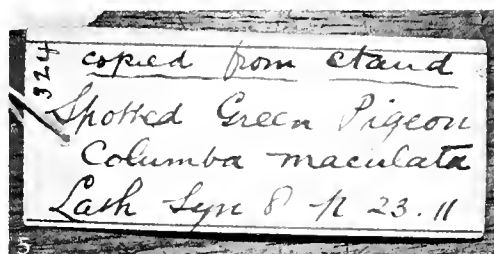 324
copied from stand
Spotted Green Pigeon
Columba maculata
Lath Syn 8 p 23.11
5